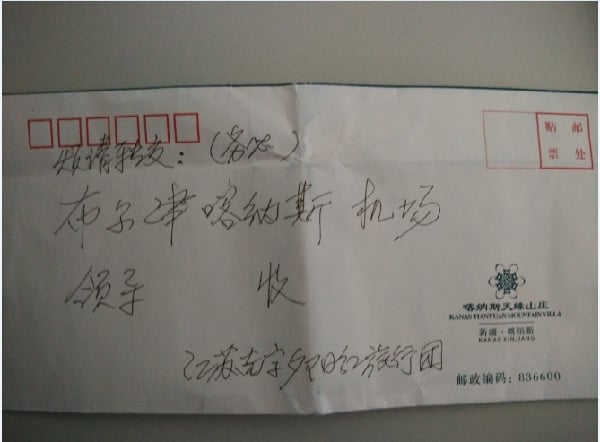 贴 邮
票 处
烦请转交：（务必）
布尔津喀纳斯机场
领导 收
喀纳斯天缘山庄
KANAS TIANYUAN MOUNTAIN VILLA
新疆·喀纳斯
KANAS XINJIANG
江苏 夕阳红旅行团
邮政编码：836600